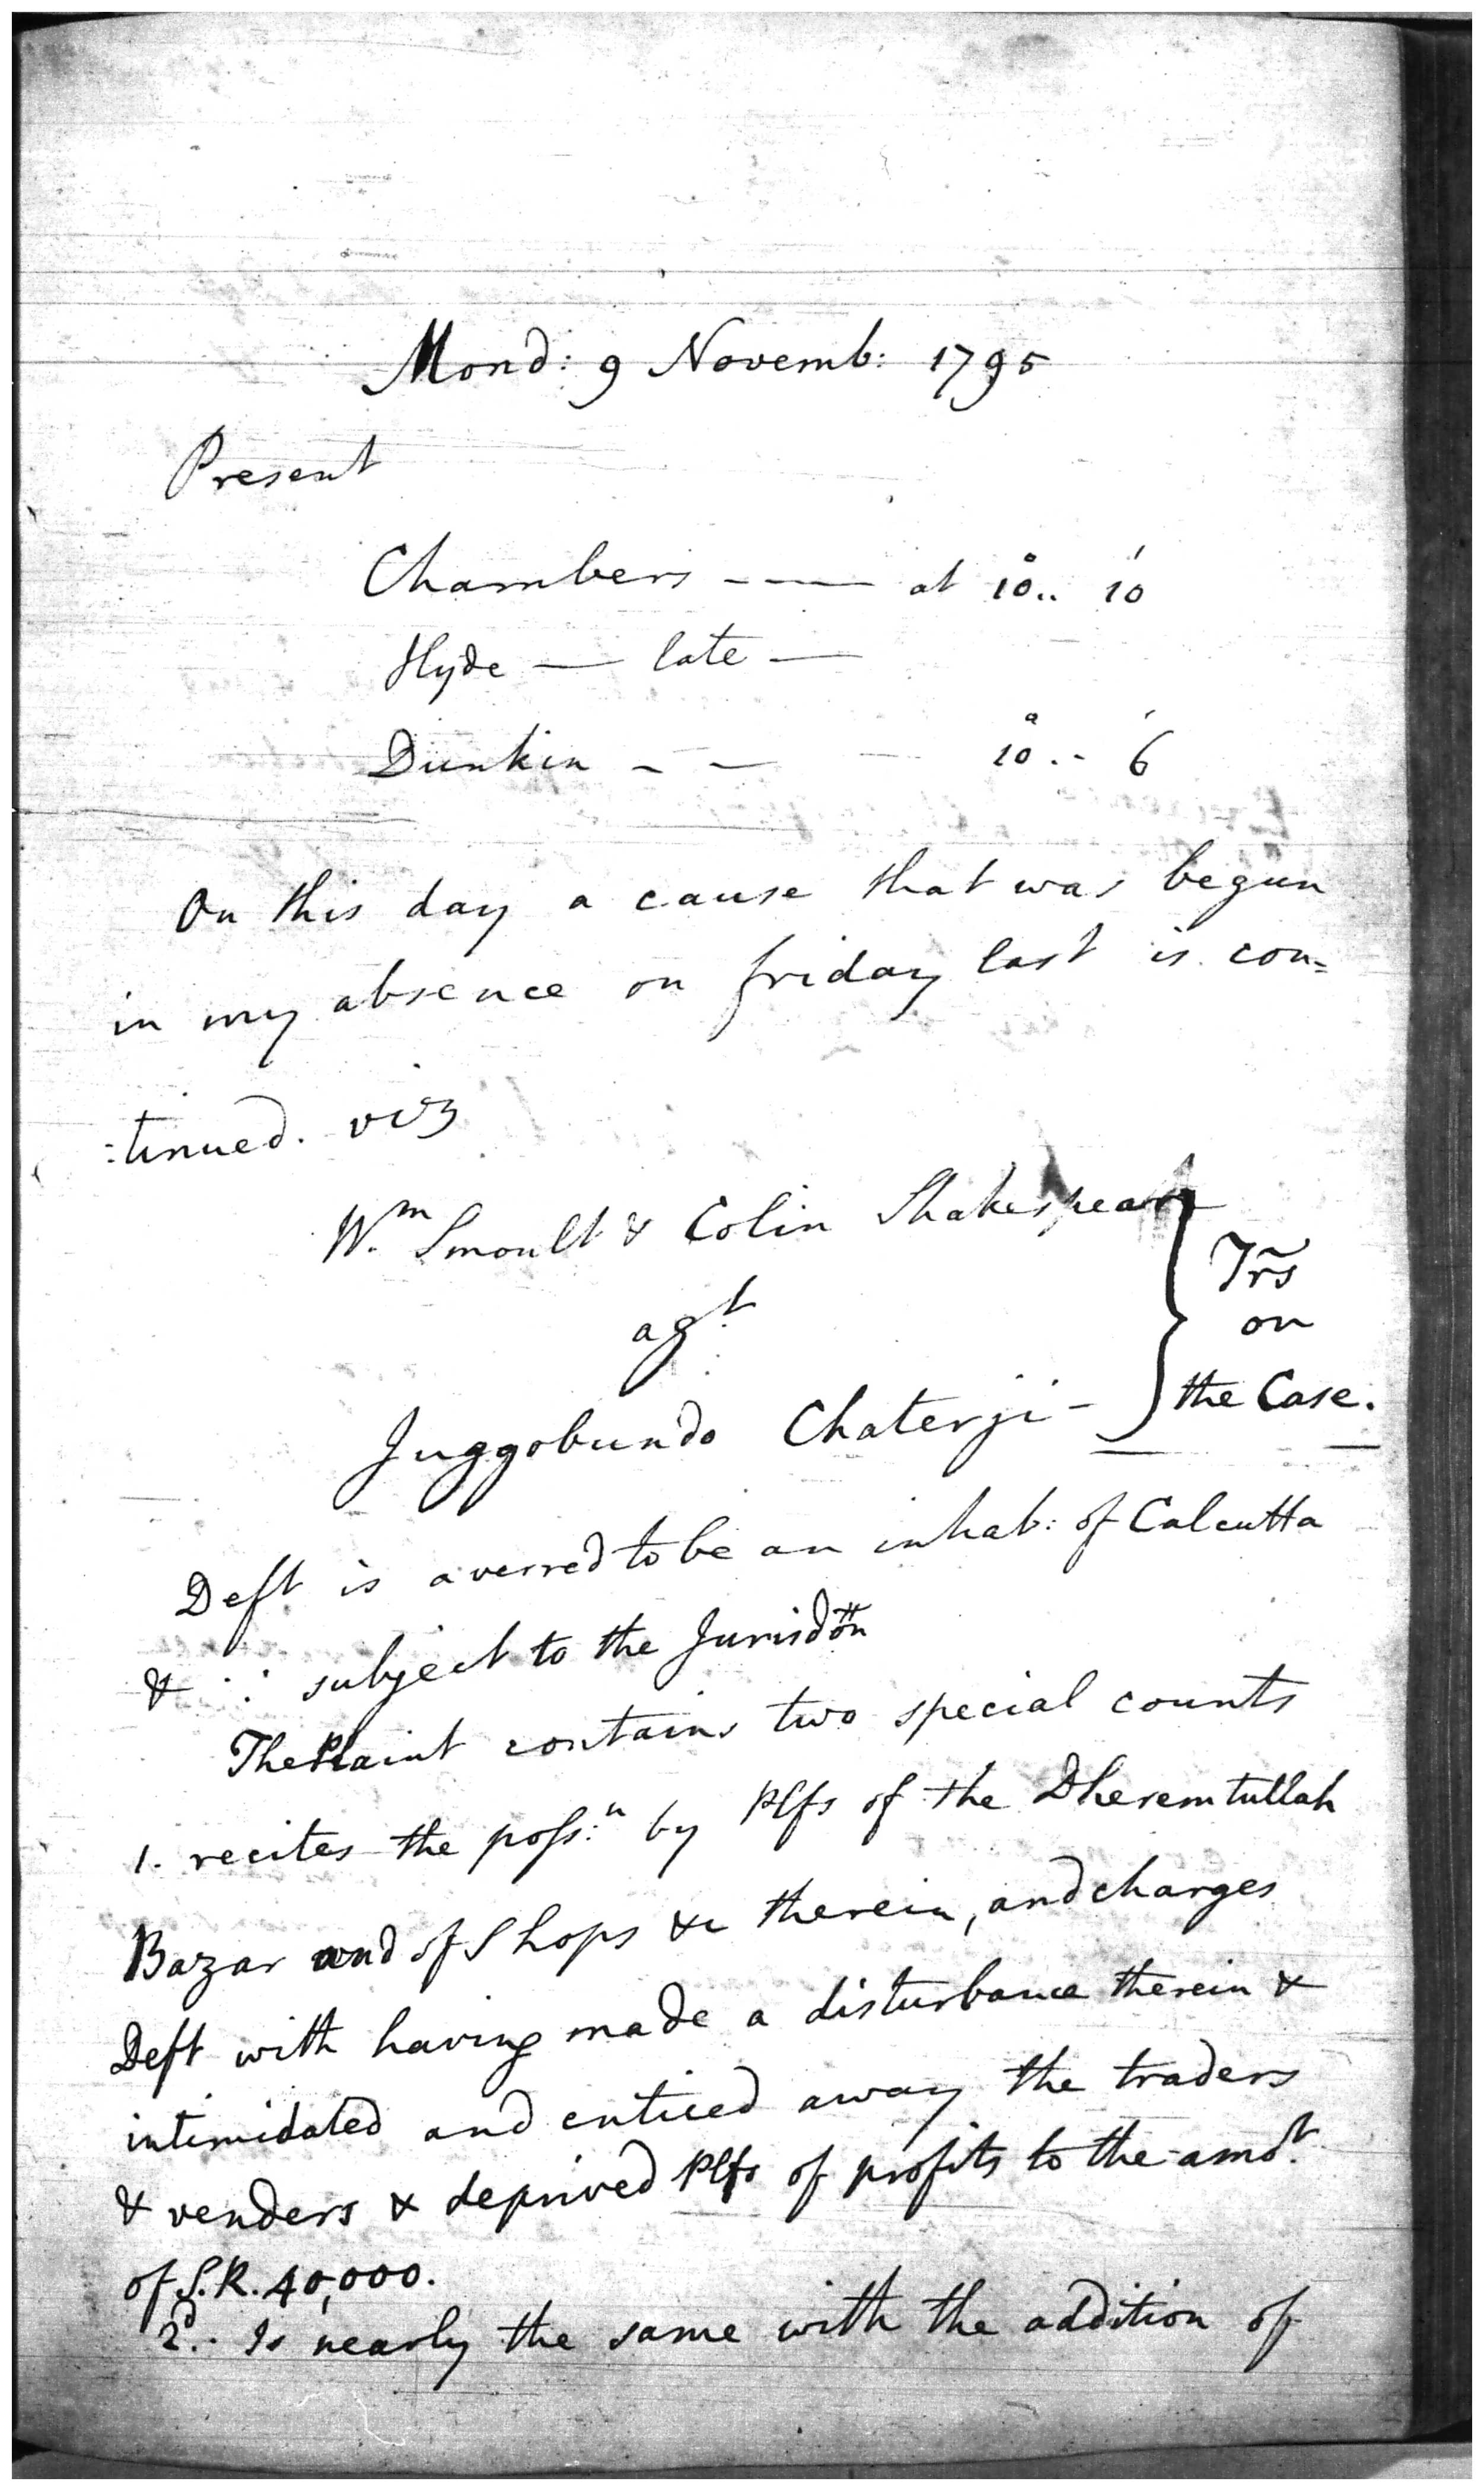 Mond: 9 Novemb: 1795
Present
Chambers ---- at 10°.. 10'
Hyde — late —
Dunkin - - - 10°.. 6'
On this day a cause that was begun
in my absence on friday last is con=
:tinued. viz
Wm. Smoult & Colin Shakespear
agt.
Juggobundo Chaterji -
} Trs
on
the Case.
Deft. is averred to be an inhab: of Calcutta
& ∴ subject to the Jurisdon
The Plaint contains two special counts
1. recites the poss:n by Plfs of the Dheremtullah
Bazar and of Shops &c therein, and charges
Deft with having made a disturbance therein &
intimidated and enticed away the traders
& venders & deprived Plfs of profits to the amot.
of S.R. 40,000.
2d. Is nearly the same with the addition of